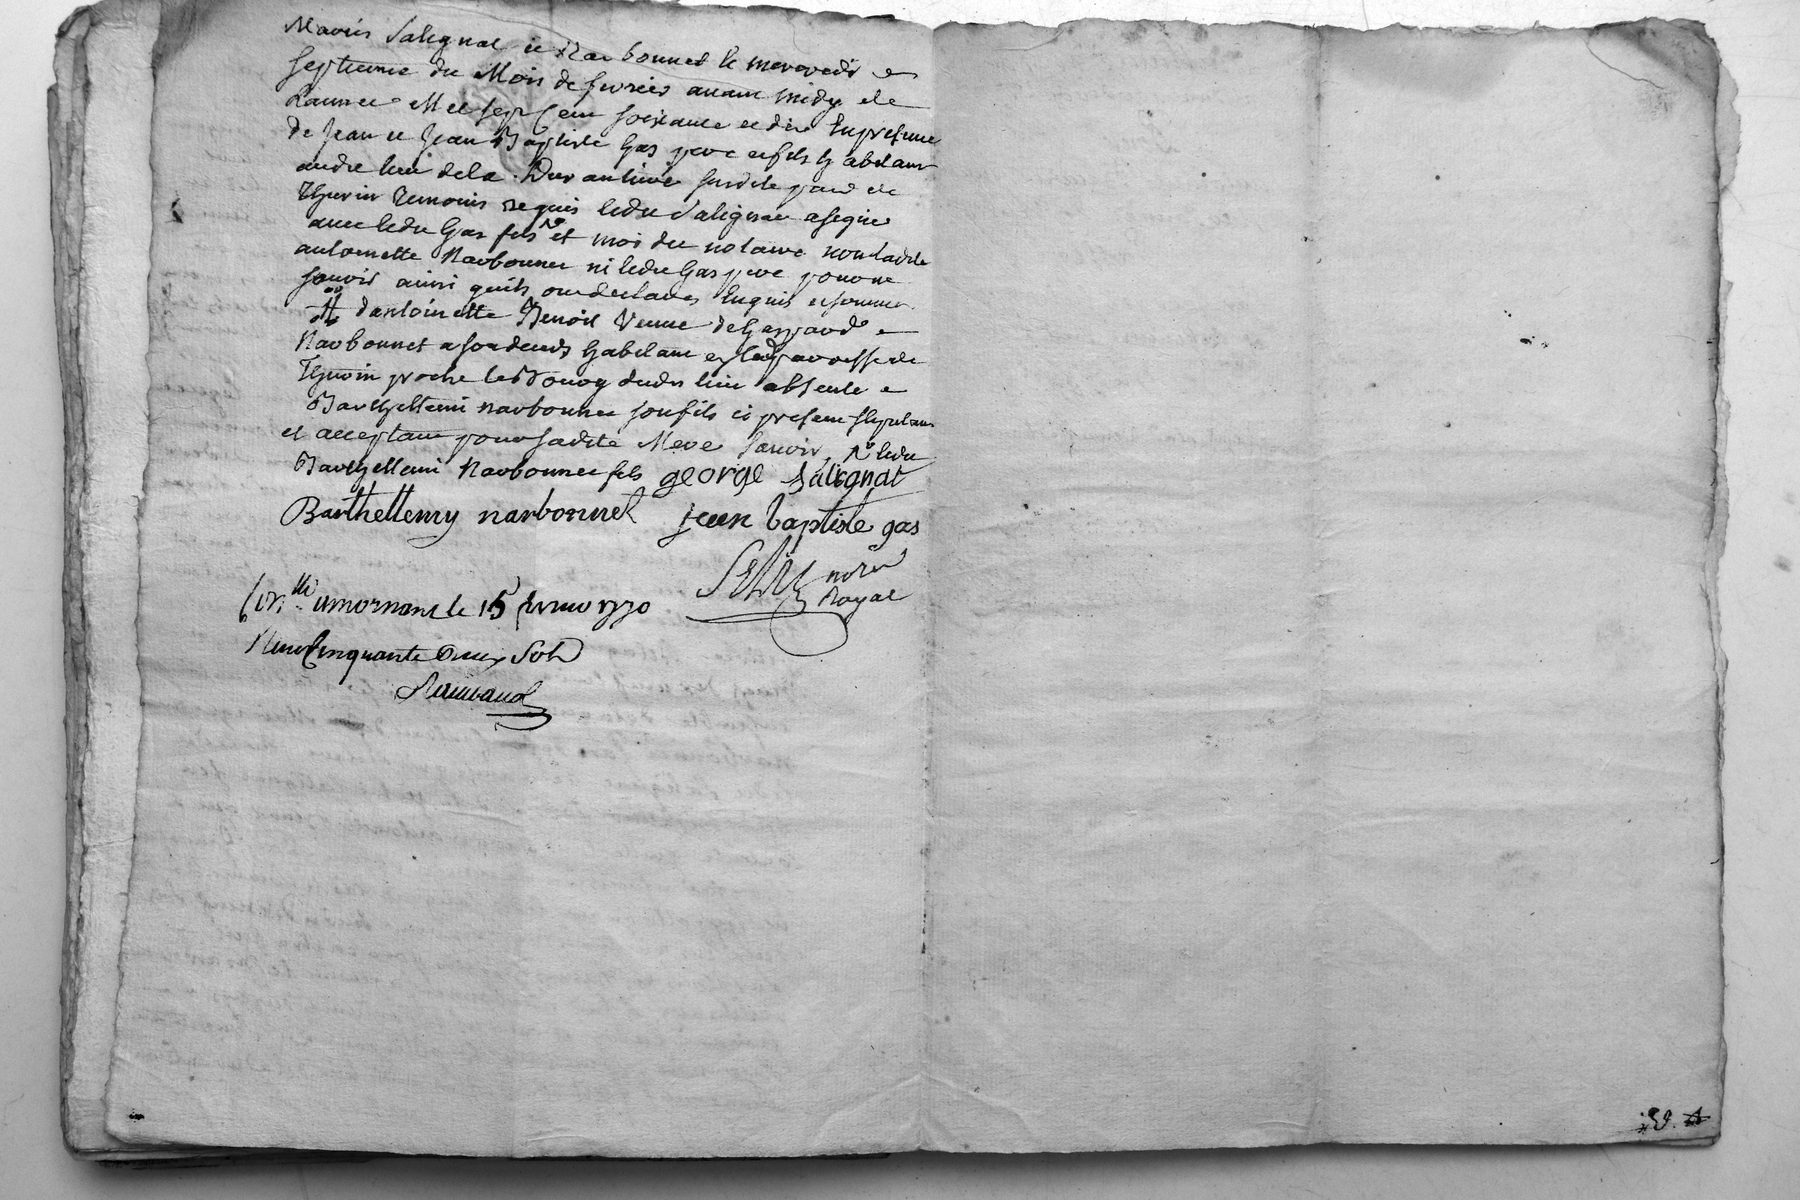 Mariés Salignat et Narbonnet le mercredi
septieme du Mois de fevrier avant midy de
Lannee Mil sept Cent soixante et dix En presence
de Jean et Jean Baptiste Gas pere et fils habitans
audit lieu de la susdite paroisse de
Thurin Temoins requis ledit Salignat a signe
avec ledit Gas fils et moi dit notaire non ladite
antoinette Narbonnet ni ledit Gas pere pour ne
savoir ainsi quils ont declares Enquis et sommes
dantoinette Benoit Veuve de Gaspard
Narbonnet a son deceds habitante en lad paroisse de
Thurin proche le Bourg dudit lieu absente
Barthellemi narbonnet son fils ici present stipulant
et acceptant pour sadite Mere savoir, ledit
Barthellemi Narbonnet fils george Salignat
Barthellemy narbonnet jean baptiste gas
notre
Royal
Con.lle a mornant le 15 fevrier 1770
Recu Cinquante Deux Sols